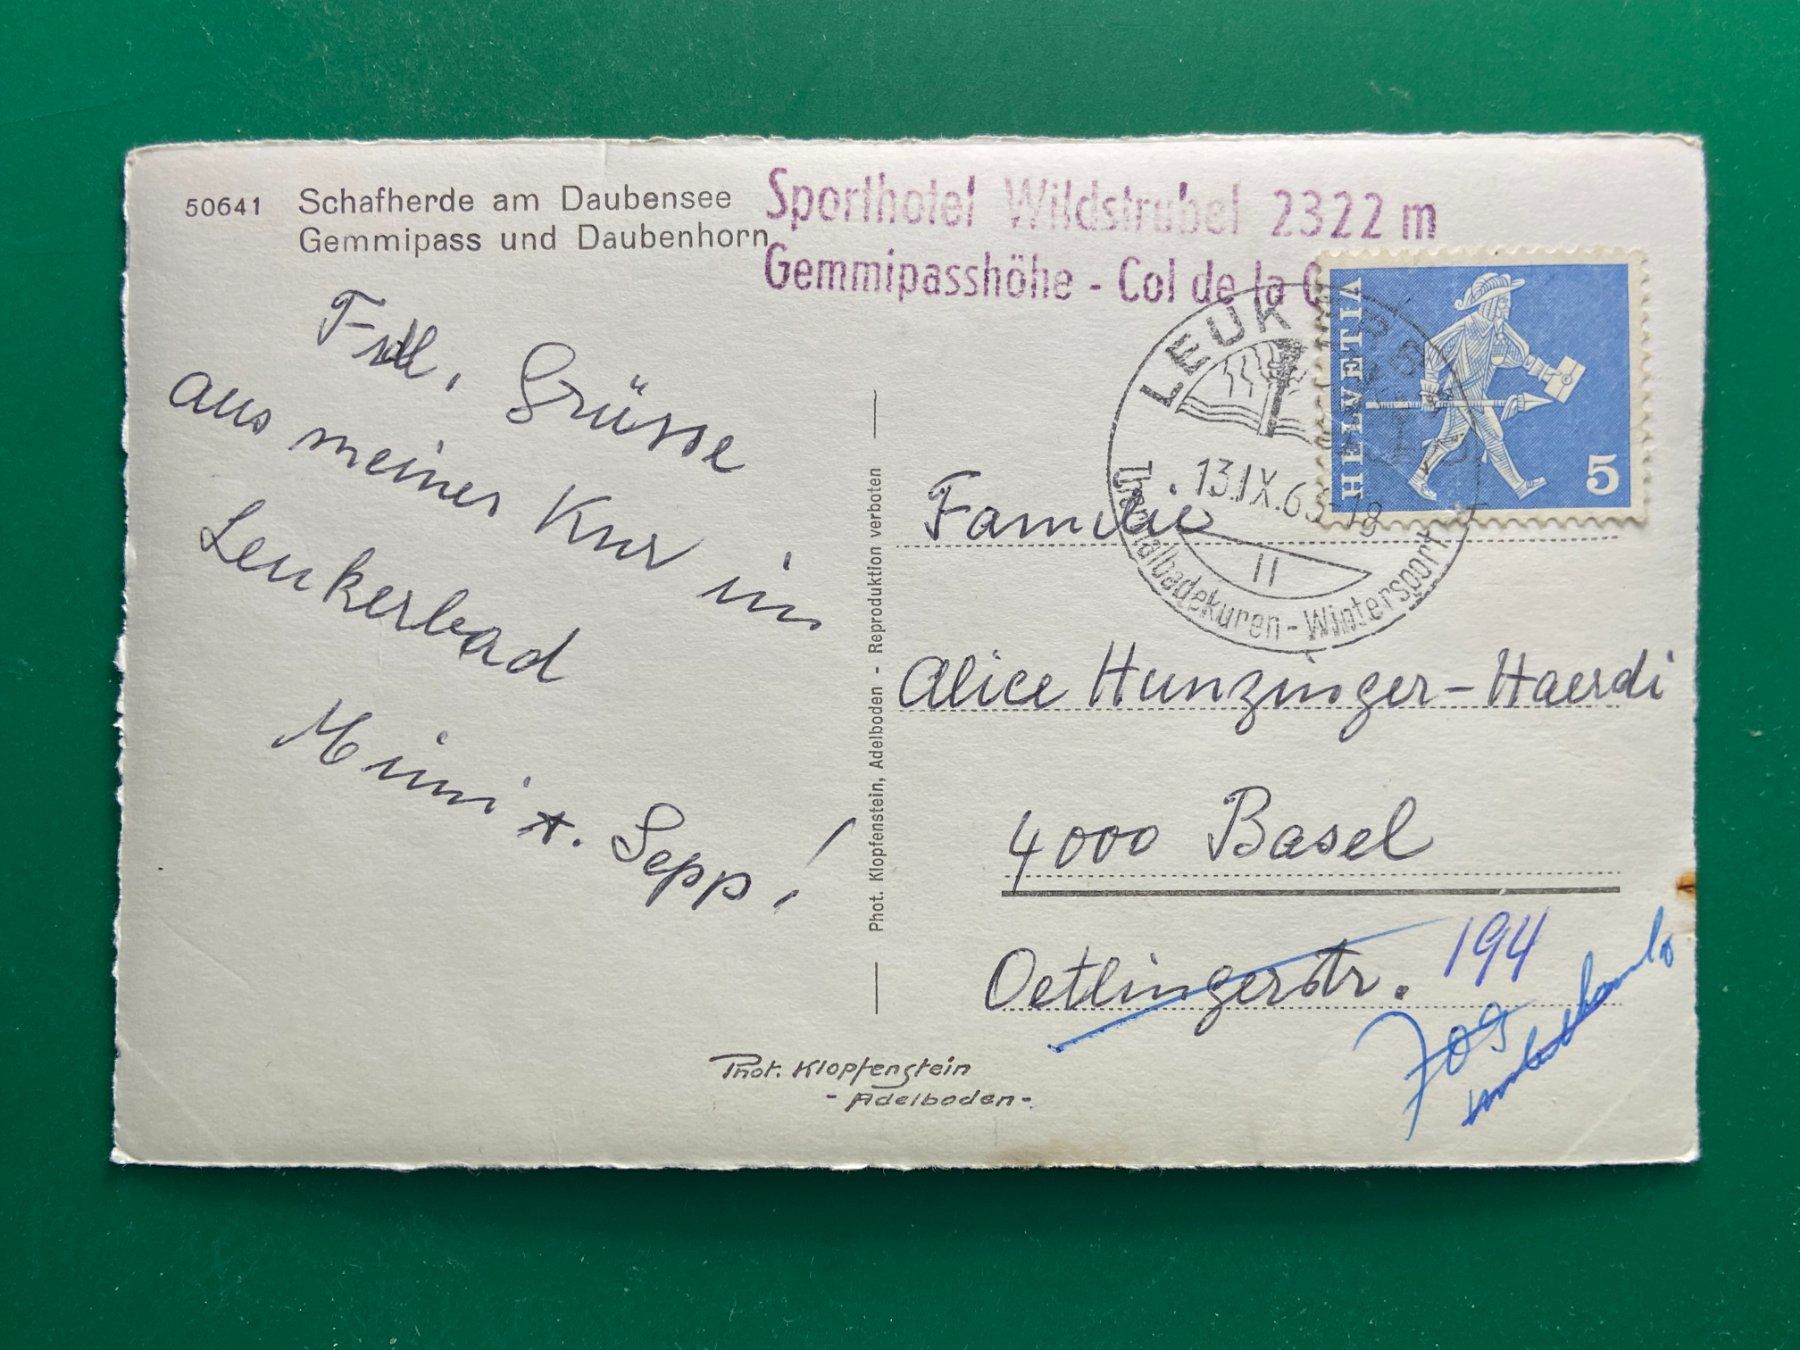 50641 Schafherde am Daubensee
Gemmipass und Daubenhorn
Sporthotel Wildstrubel 2322 m
Gemmipasshöhe - Col de la G
HELVETIA
5
LEUKERB
13.IX.6 -18
II
Thermalbadekuren - Wintersport
Frdl. Grüsse
aus meiner Kur in
Leukerbad
Mimi + Sepp!
Phot. Klopfenstein, Adelboden - Reproduktion verboten
Familie
Alice Hunzinger-Haerdi
4000 Basel
Oetlingerstr. 194
Phot. Klopfenstein
- Adelboden -